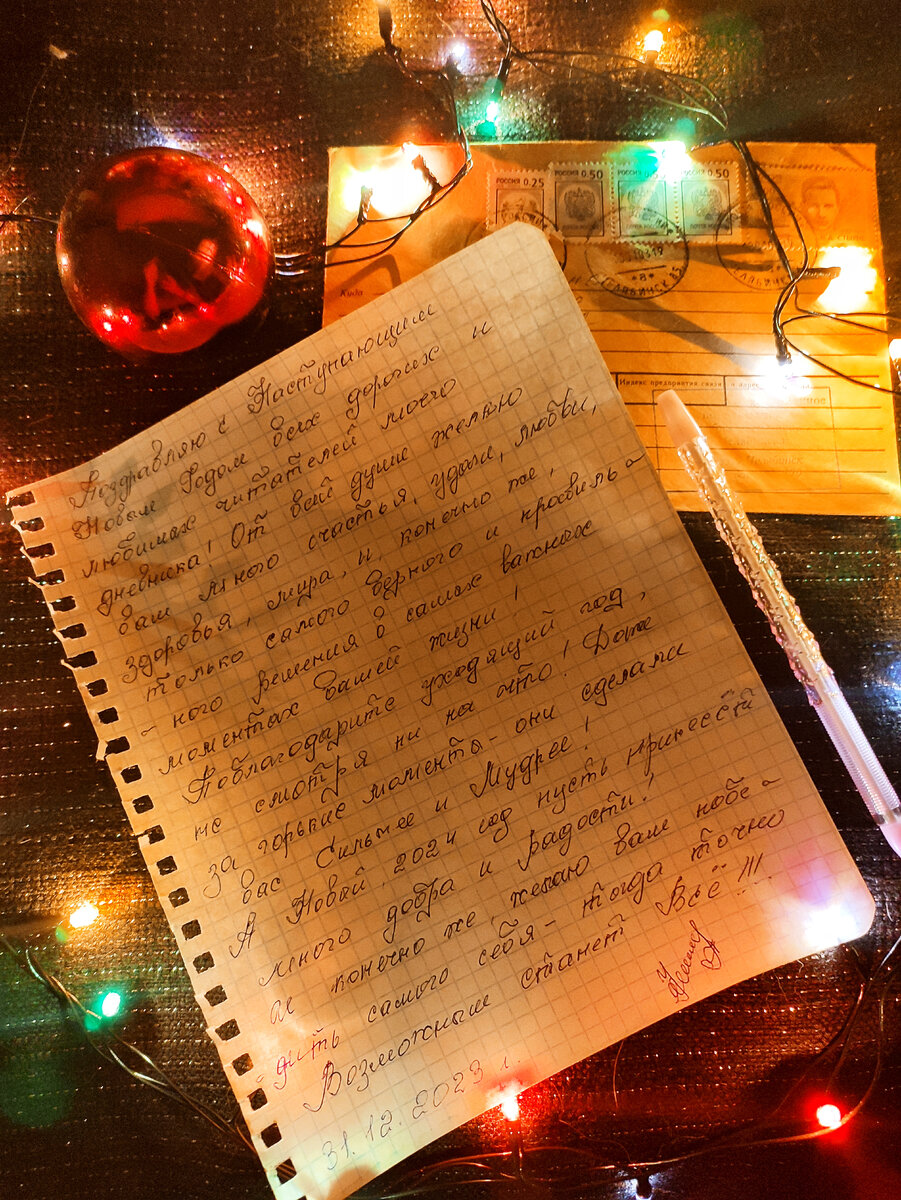 РОССИЯ 0.25
РОССИЯ 0.50
РОССИЯ 0.50
Куда
Индекс предприятия связи и адрес
Поздравляю с Наступающим
Новым Годом всех дорогих и
любимых читателей моего
дневника! От всей души желаю
вам много счастья, удачи, любви,
здоровья, мира, и, конечно же,
только самого верного и правиль-
- ного решения в самых важных
моментах вашей жизни!
Поблагодарите уходящий год,
не смотря ни на что! Даже
за горькие моменты - они сделали
вас Сильнее и Мудрее!
А Новый, 2024 год пусть принесёт
много добра и радости!
И конечно же, желаю вам побе-
дить самого себя - тогда точно
Возможным станет Всё!!!
31.12.2023 г.